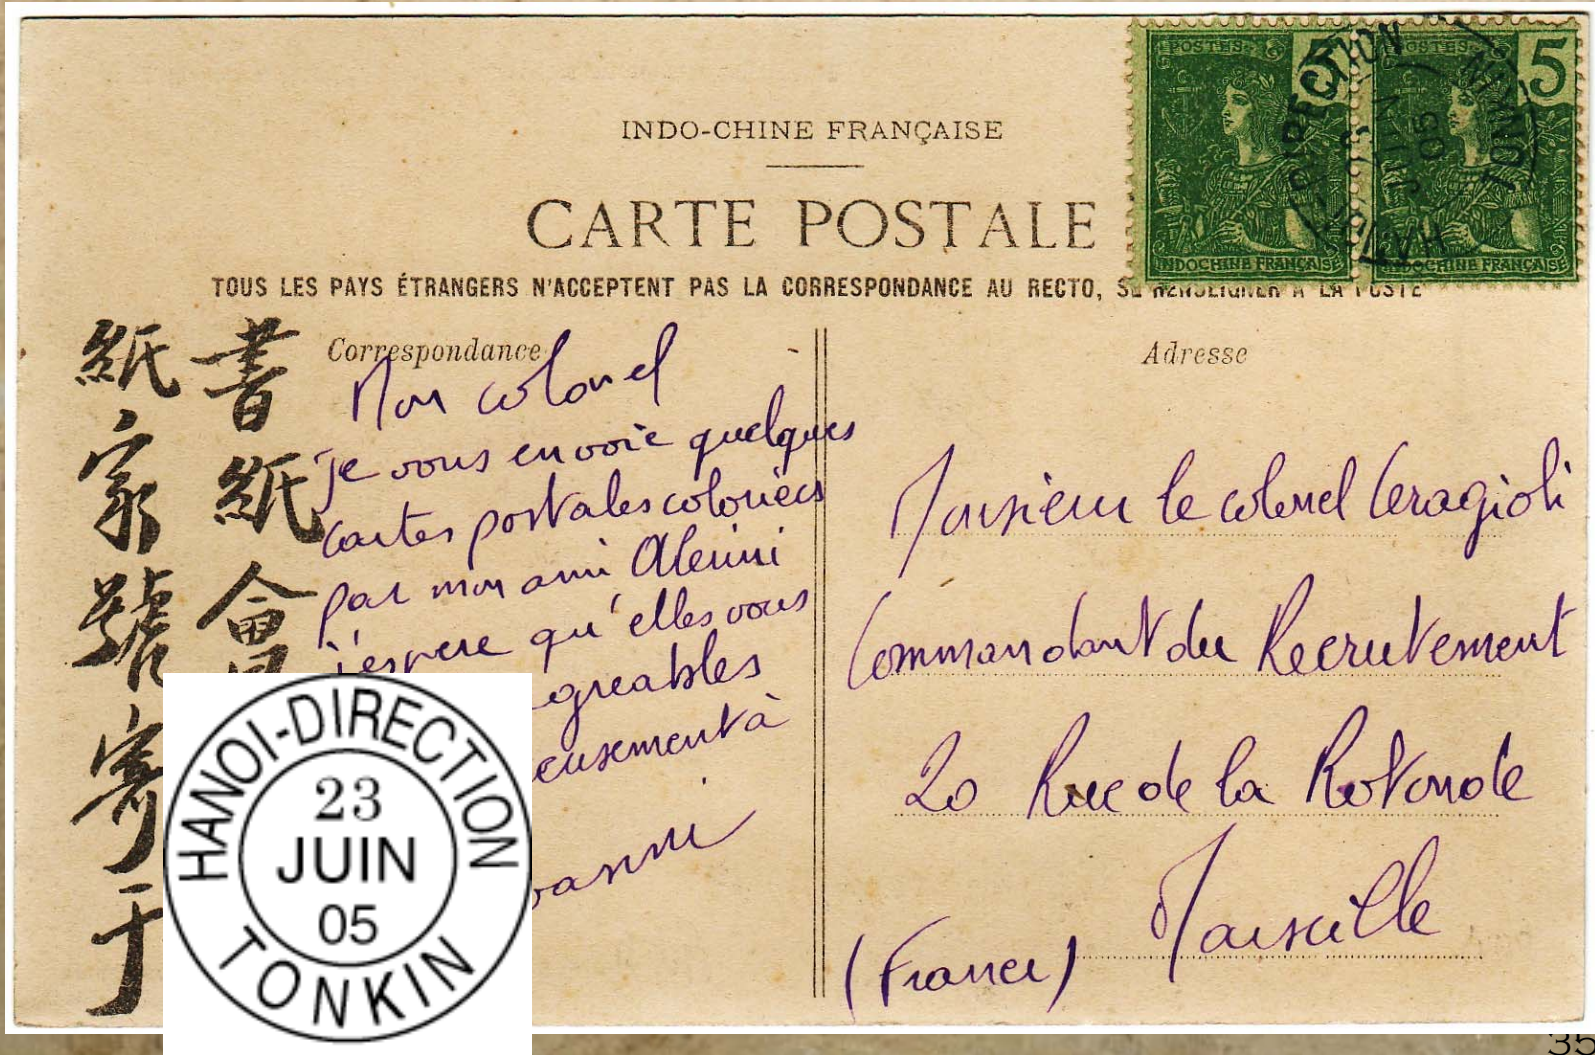 INDO-CHINE FRANÇAISE
CARTE POSTALE
TOUS LES PAYS ÉTRANGERS N'ACCEPTENT PAS LA CORRESPONDANCE AU RECTO, SE RENSEIGNER A LA POSTE
POSTES 5
INDOCHINE FRANÇAISE
POSTES 5
INDOCHINE FRANÇAISE
HANOI-DIRECTION
JUIN
05
TONKIN
書紙會
紙家號寄于
Correspondance
Mon colonel
je vous envoie quelques
cartes postales coloriées
par mon ami
j'espere qu'elles vous
greables
eusement à
Adresse
Monsieur le colonel Ceragioli
Commandant du Recrutement
20 Rue de la Rotonde
Marseille
(France)
HANOI-DIRECTION
23
JUIN
05
TONKIN
35